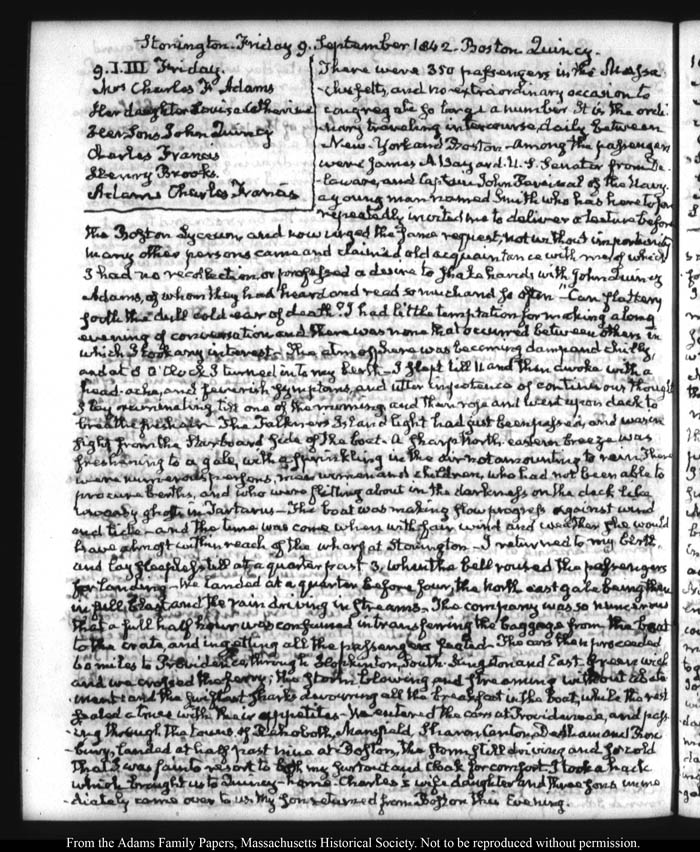 Stonington. Friday 9. September 1842. Boston Quincy.
9. I. III Friday.
Mrs Charles F. Adams
Her daughter Louisa Catherine
Her Sons John Quincy
Charles Francis
Henry Brooks.
Adams Charles Francis
There were 350 passengers in the Massa
chusetts, and no extraordinary occasion to
congregate so large a number. It is the ordi
nary traveling intercourse, daily between
New-York and Boston. Among the passengers
were James A Bayard. U.S. Senator from De
laware, and Captain John Percival of the Navy.
a young man named Smith who has heretofore
repeatedly invited me to deliver a lecture before
the Boston Lyceum, and now urged the same request, not without importunity
many other persons came and claimed old acquaintance with me, of which
I had no recollection, or professed a desire to shake hands with John Quincy
Adams, of whom they had heard and read so much and so often. "Can flattery
sooth the dull cold ear of death"? I had little temptation for making a long
evening of conversation and there was none that occurred between others in
which I took any interest. The atmosphere was becoming damp and chilly,
and at 8 O'Clock I turned in to my berth. I slept till 11 and then awoke with a
head-ache, and feverish symptoms, and utter impotence of continuous thought
I lay ruminating till one of the morning, and then rose and went upon deck to
breathe fresh air. The Falkners Island light had just been passed, and was in
sight from the Starboard side of the boat. A sharp North-eastern breeze was
freshening to a gale, with a sprinkling in the air not amounting to rain. There
were numerous persons, men women and children, who had not been able to
procure berths, and who were flitting about in the darkness on the deck like
unquiet ghosts in Tartarus. The boat was making slow progress against wind
and tide, and the time was come when with fair wind and weather she would
have almost within reach of the wharf at Stonington. I returned to my berth
and lay sleepless till at a quarter past 3, when the bell roused the passengers
for landing. We landed at a quarter before four, the north east gale being then
in full blast and the rain driving in streams. The company was so numerous
that a full half hour was consumed in transferring the baggage from the boat
to the crate, and in getting all the passengers seated. The cars then proceeded
50 miles to Providence, through Hopkinton, South-Kingston and East Greenwich
and we crossed the ferry; the storm blowing and streaming without abate
ment: and the swiftest sharks devouring all the breakfast in the boat, while the rest
sealed a truce with their appetites. We entered the cars at Providence, and pass
ing through the towns of Rehoboth, Mansfield, Sharon, Canton, Dedham and Rox
bury, landed at half past nine at Boston, the storm still driving and so cold
that I was fain to resort to both my surtout and cloak for comfort. I took a hack
which brought us to Quincy-home. Charles's wife daughter and three sons imme
diately came over to us. My Son returned from Boston this Evening.
From the Adams Family Papers, Massachusetts Historical Society. Not to be reproduced without permission.